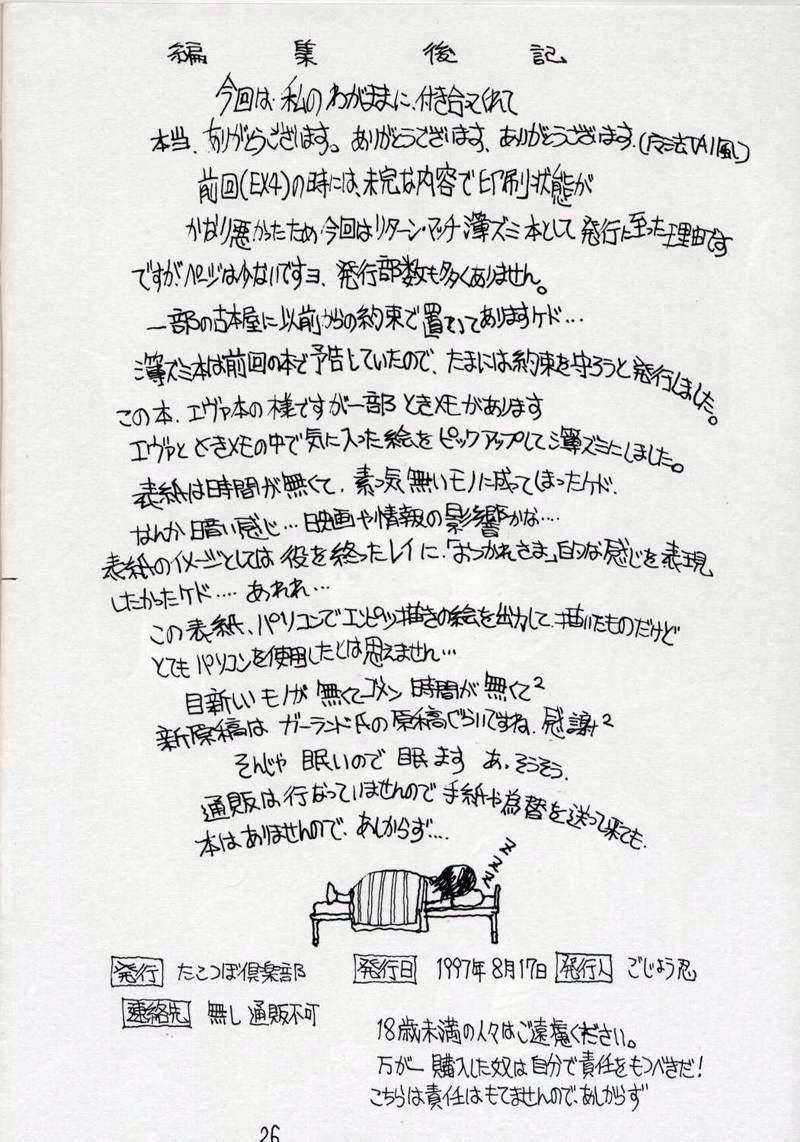 編集後記
今回は私のわがままに、付き合ってくれて
本当、ありがとうございます。ありがとうございます、ありがとうございます。
前回(EX4)の時には、未完な内容で印刷状態が
かなり悪かったため今回はリターン・マッチ 薄ズミ本として発行に至った理由です
ですが、ページは少ないですヨ、発行部数も多くありません。
一部の古本屋に以前からの約束で置いてありますケド…
薄ズミ本は前回の本で予告していたので、たまには約束を守ろうと発行しました。
この本、エヴァ本の様ですが一部ときメモがあります
エヴァとときメモの中で気に入った絵をピックアップして薄ズミにしました。
表紙は時間が無くて、素っ気無いモノに成ってしまったケド、
なんか暗い感じ…映画や情報の影響かな…
表紙のイメージとしては役を終ったレイに、「おつかれさま」的な感じを表現
したかったケド…あれれ…
この表紙、パソコンでエンピツ描きの絵を出力して、描いたものだけど
とてもパソコンを使用したとは思えません…
目新しいモノが無くてゴメン 時間が無くて²
新原稿はガーランド氏の原稿ぐらいですね、感謝²
そんじゃ 眠いので 眠ます あ、そうそう、
通販は行なっていませんので手紙や為替を送って来ても、
本はありませんので、あしからず…
zzzz
発行 たこつぼ倶楽部 発行日 1997年8月17日 発行人 ごじょう忍
連絡先 無し 通販不可
18歳未満の人々はご遠慮ください。
万が一購入した奴は自分で責任をもつべきだ!
こちらは責任はもてませんので、あしからず
26